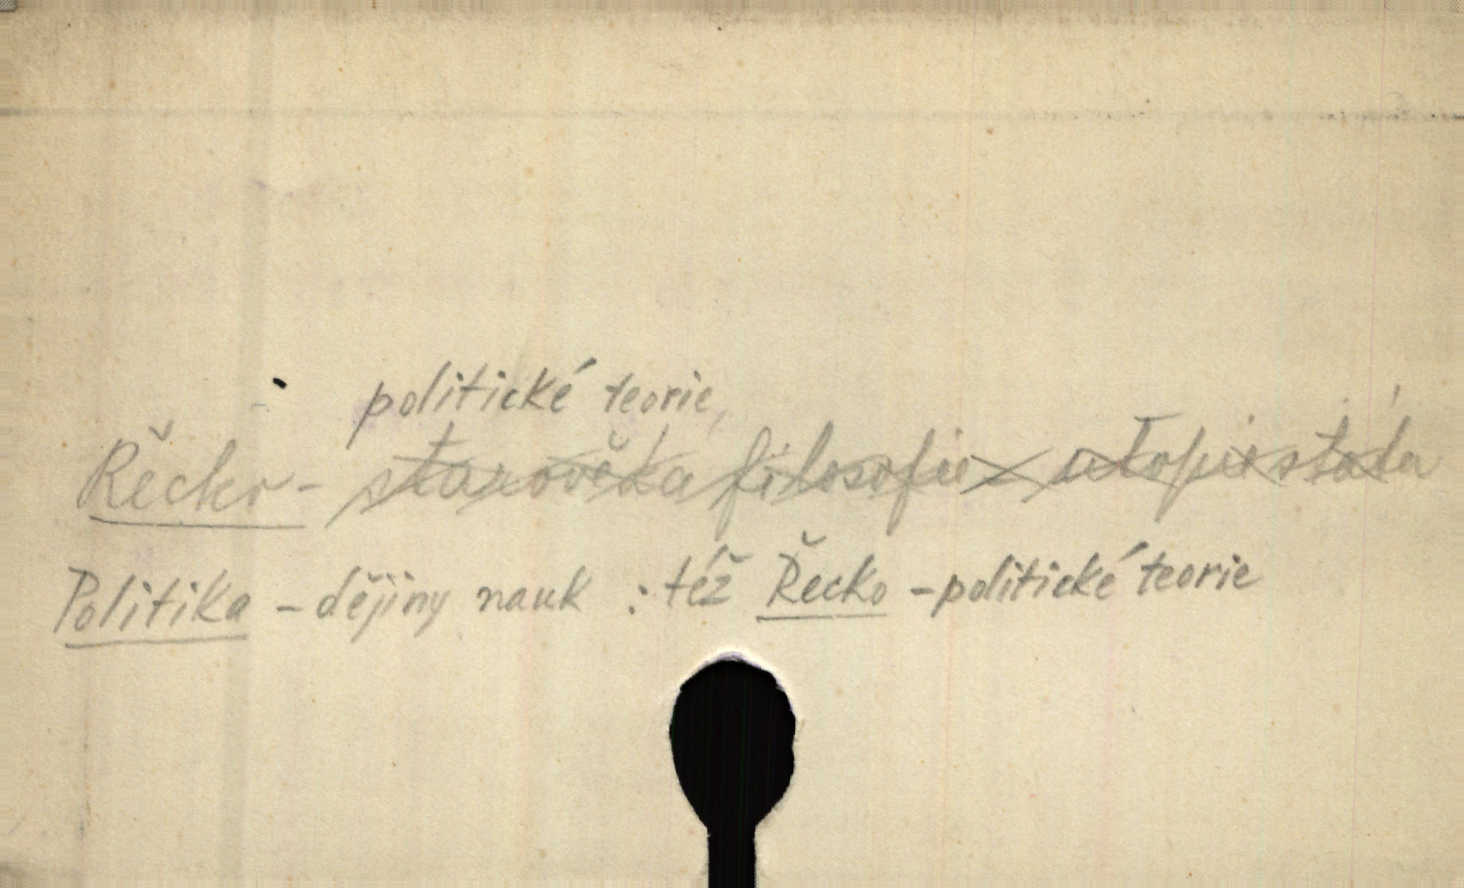 politické teorie,
Řecko - starověká filosofie utopistická
Politika - dějiny nauk : též Řecko - politické teorie